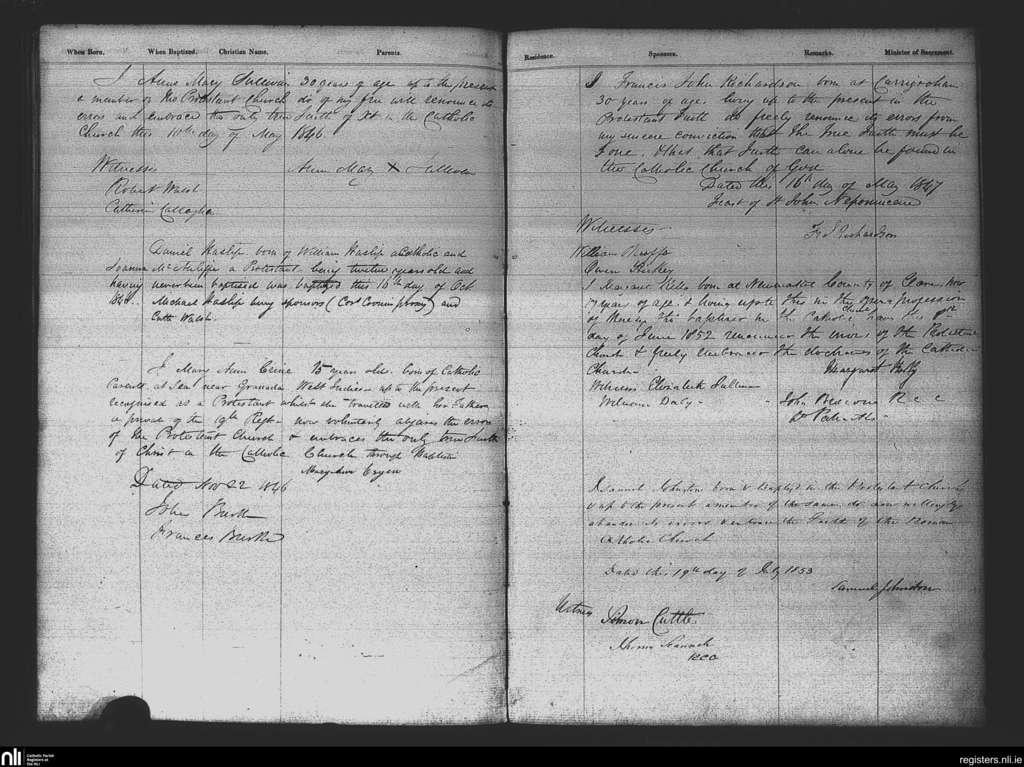 When Born. When Baptized. Christian Name. Parents.
I Anne Mary Sullivan 30 years of age up to the present
a member of the Protestant Church do of my free will renounce its
errors and embrace the only true Faith of in the Catholic
Church this 10th day of May 1846
Witnesses Ann Mary X Sullivan
Robert Walsh
Catherine Callaghan
Daniel Haslip born of William Haslip a Catholic and
Joanna McAuliffe a Protestant being twelve years old and
having never been baptised was baptized this 10th day of Oct
Michael Haslip being sponsors ( ) and
Cath Walsh.
I Mary Ann 15 years old born of Catholic
Parents at Sea near Granada West Indies up to the present
recognised as a Protestant whilst she travelled with her Father
a private of the 19th Regt now voluntarily abjures the errors
of the Protestant Church & embraces the only true Faith
of Christ in the Catholic Church through
Mary Ann
Dated Nov 22 1846
John Burke
Frances Burke
Residence. Sponsors. Remarks. Minister of Sacrament.
I Francis John Richardson born at Carrigrohan
30 years of age, living up to the present in the
Protestant Faith do freely renounce its errors from
my sincere conviction that the True Faith must be
one. & that that Faith can alone be found in
the Catholic Church of God
Dated this 16th day of May 1847
Feast of St John Nepomucene
Witnesses Fr J Richardson
William
Owen
I Margaret Kelly born at Newmarket County of Clare, now
17 years of age & living up to this in the open profession
of this baptised in the Catholic Church
day of June 1852 renounce the errors of the Protestant
Church & freely embrace the doctrines of the Catholic
Church Margaret Kelly
Witness Elizabeth Sullivan
William Daly John R C C
St Patricks
I Samuel Johnston born & baptized in the Protestant Church
& up to the present a member of the same, do now willingly
abandon its errors & embrace the Faith of the Roman
Catholic Church
Dated this 19th day of July 1853
Samuel Johnston
Witness Simon Cuttle
RCC
nli Catholic Parish Registers at the NLI
registers.nli.ie